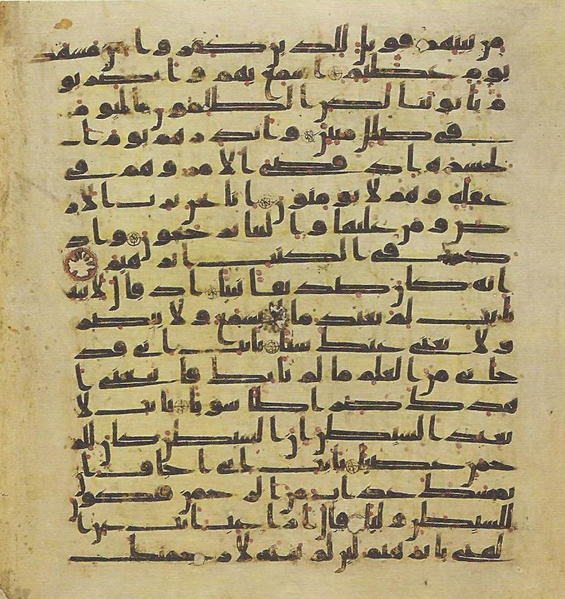 من بينهم فويل للذين كفروا من مشهد
يوم عظيم اسمع بهم وابصر يو
م ياتوننا لكن الظلمون اليوم
في ضلل مبين وانذرهم يوم ا
لحسرة اذ قضي الامر وهم في
غفلة وهم لا يومنون انا نحن نرث الا
رض ومن عليها والينا يرجعون واذ
كر في الكتب ابرهيم
انه كان صديقا نبيا اذ قال لابيه
يابت لم تعبد ما لا يسمع ولا يبصر
ولا يغني عنك شيا يابت اني قد
جاني من العلم ما لم ياتك فاتبعني ا
هدك صرطا سويا يابت لا
تعبد الشيطن ان الشيطن كان للر
حمن عصيا يابت اني اخاف ان
يمسك عذاب من الرحمن فتكون
للشيطن وليا قال اراغب انت عن ا
لهتي يابرهيم لين لم تنته لارجمنك